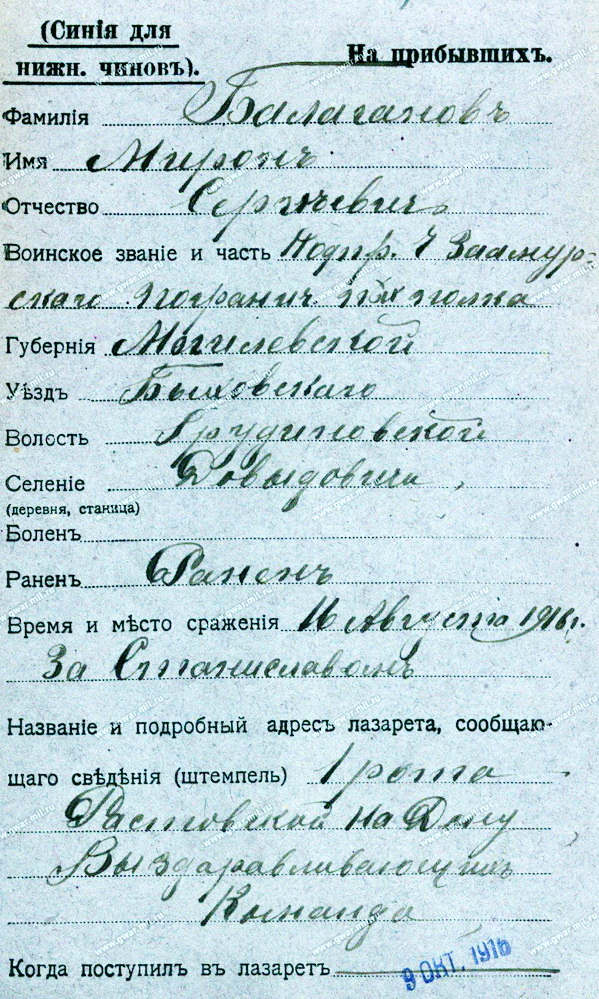 (Синія для
нижн. чиновъ).
На прибывшихъ.
Фамилія Балагановъ
Имя Миронъ
Отчество Сергѣевичъ
Воинское званіе и часть Подпр. 4 Заамур-
скаго погранич. пѣх полка
Губернія Могилевской
Уѣздъ Быховскаго
Волость Грудиновской
Селеніе Довыдовичи
(деревня, станица)
Боленъ
Раненъ Раненъ
Время и мѣсто сраженія 16 Августа 1916 г.
За Станиславомъ
Названіе и подробный адресъ лазарета, сообщаю-
щаго свѣдѣнія (штемпель) 1 рота
Растовской на Дону
Выздаравливающихъ
Команда
Когда поступилъ въ лазаретъ
9 ОКТ. 1916